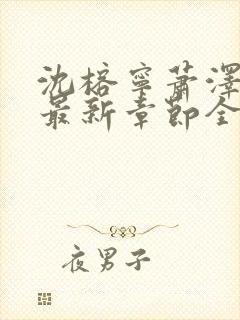 沈榕寧蕭澤
最新章節全
夜男子